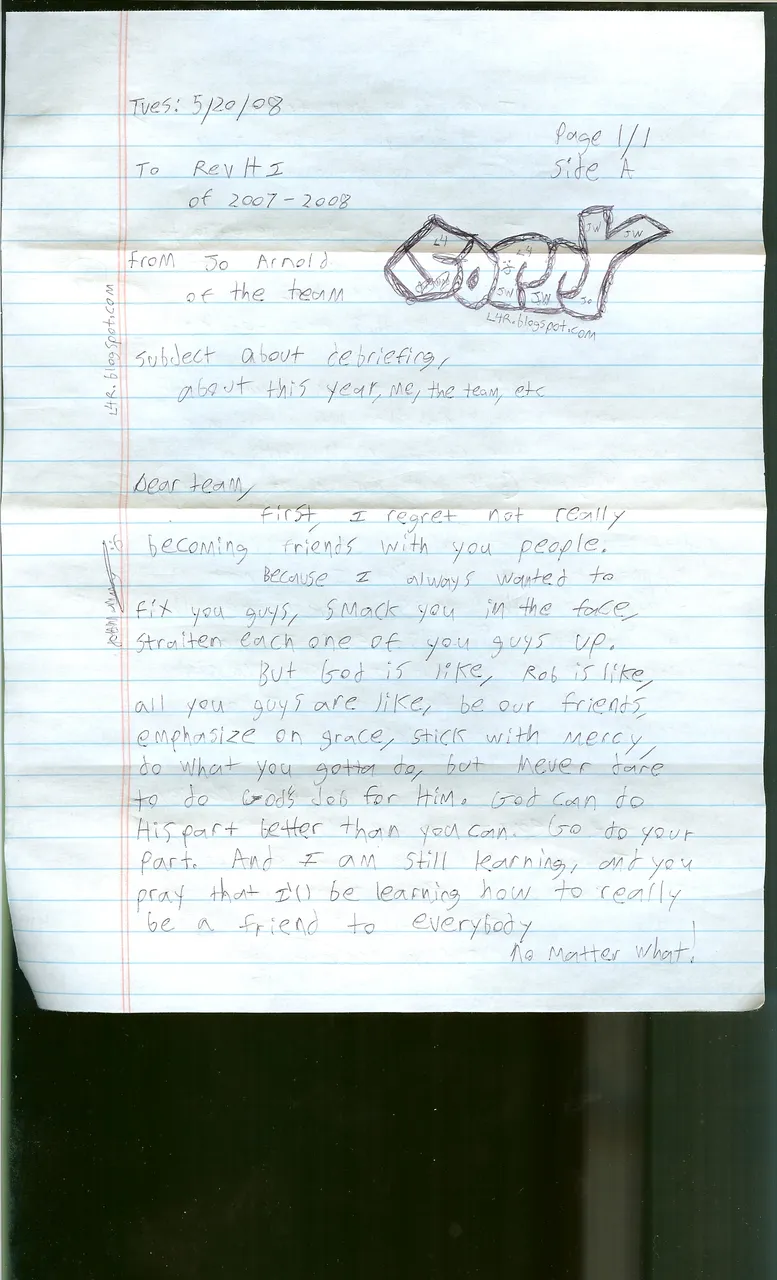 Tues: 5/20/08
Page 1/1
Side A
To Rev H I
of 2007-2008
SORRY
L4
L4
JW
JW
JW
JW
Jo
L4R.blogspot.com
from Jo Arnold
of the team
L4R.blogspot.com
subject about debriefing,
about this year, me, the team, etc
Dear team,
First, I regret not really
becoming friends with you people.
Because I always wanted to
fix you guys, smack you in the face,
straiten each one of you guys up.
But God is like, Rob is like,
all you guys are like, be our friends,
emphasize on grace, stick with mercy,
do what you gotta do, but never dare
to do God's Job for Him. God can do
His part better than you can. Go do your
part. And I am still learning, and you
pray that I'll be learning how to really
be a friend to everybody
no matter what!